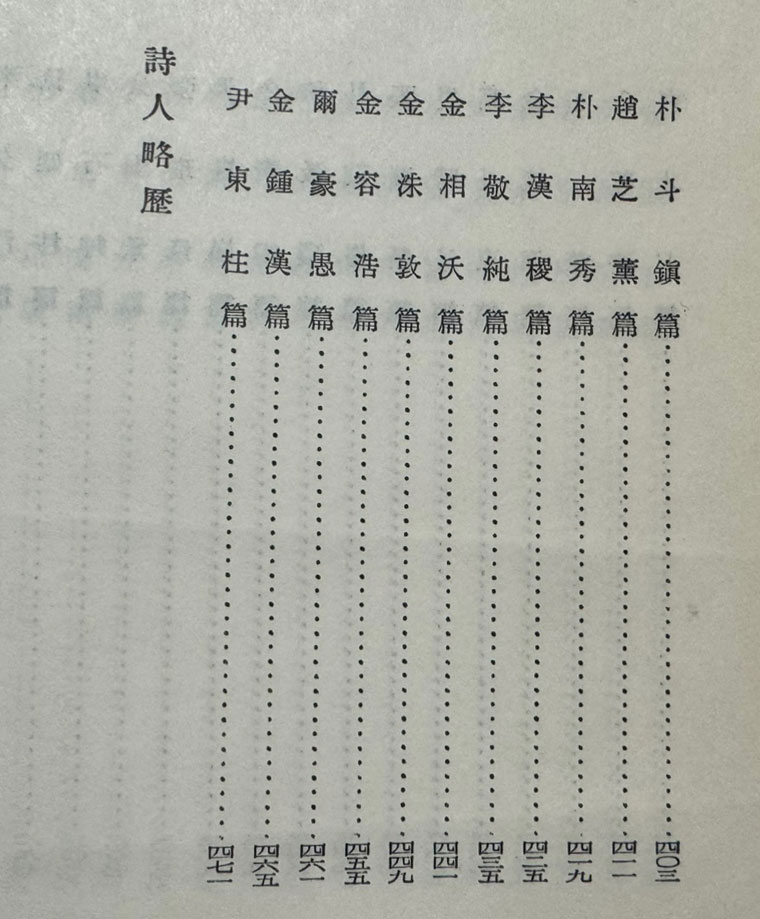 朴斗鎭篇 四〇三
趙芝薰篇 四一一
朴南秀篇 四一九
李漢稷篇 四二五
李敬純篇 四三五
金相沃篇 四四一
金洙敦篇 四四九
金容浩篇 四五五
爾豪愚篇 四六一
金鍾漢篇 四六五
尹東柱篇 四七一
詩人略歷